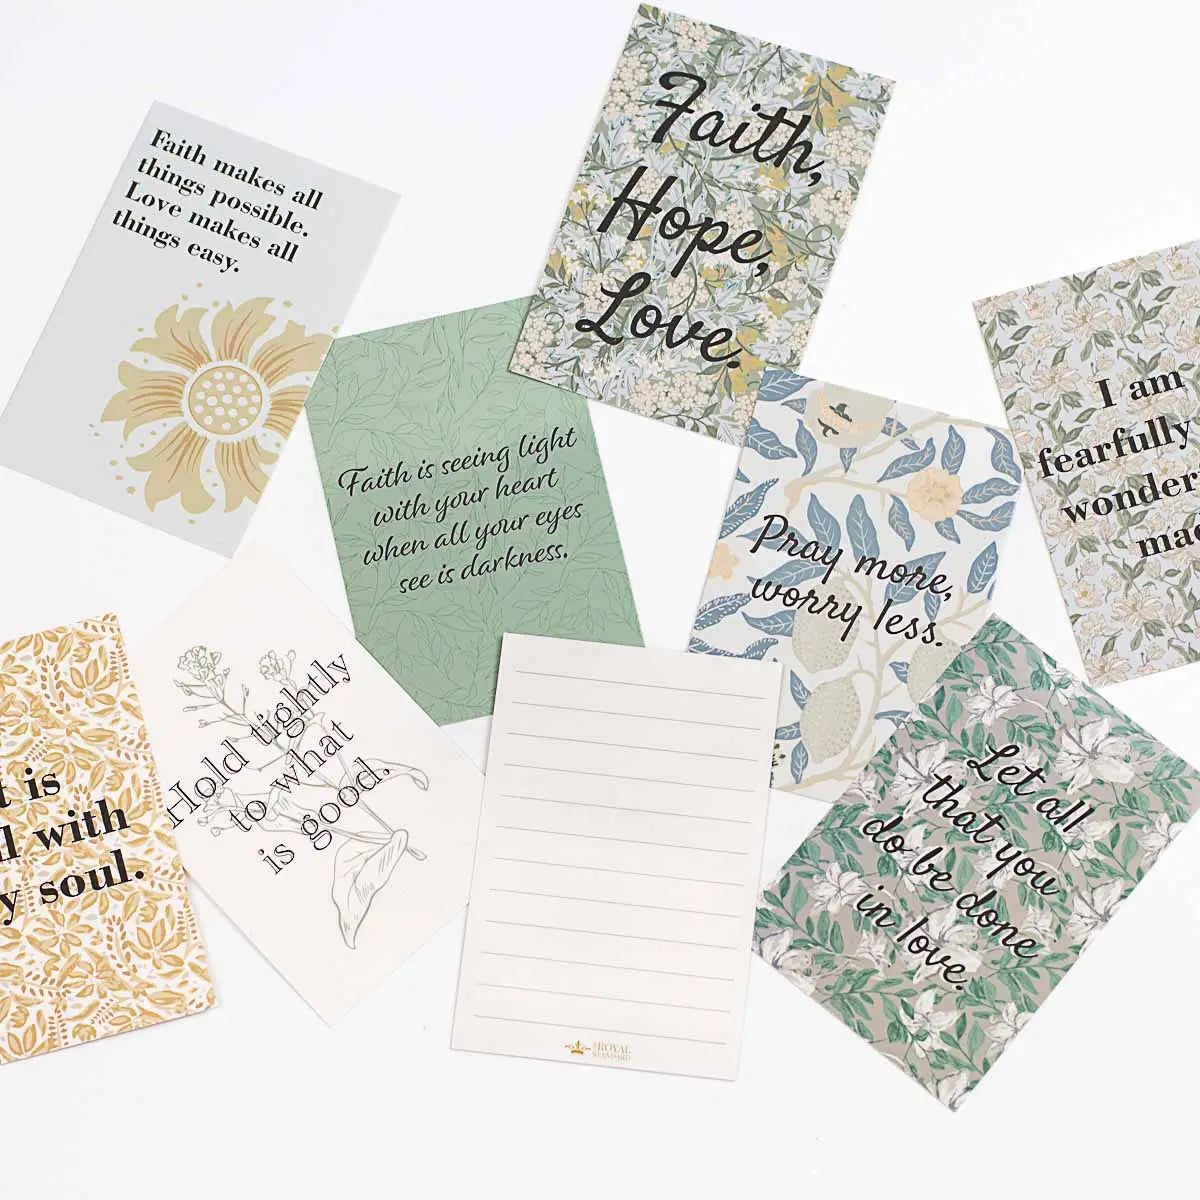 Faith makes all
things possible.
Love makes all
things easy.
Faith,
Hope,
Love.
Faith is seeing light
with your heart
when all your eyes
see is darkness.
Pray more,
worry less.
I am
fearfully
wonder
mad
is
with
soul.
Hold tightly
to what
is good.
Let all
that you
do be done
in love.
THE ROYAL
STANDARD